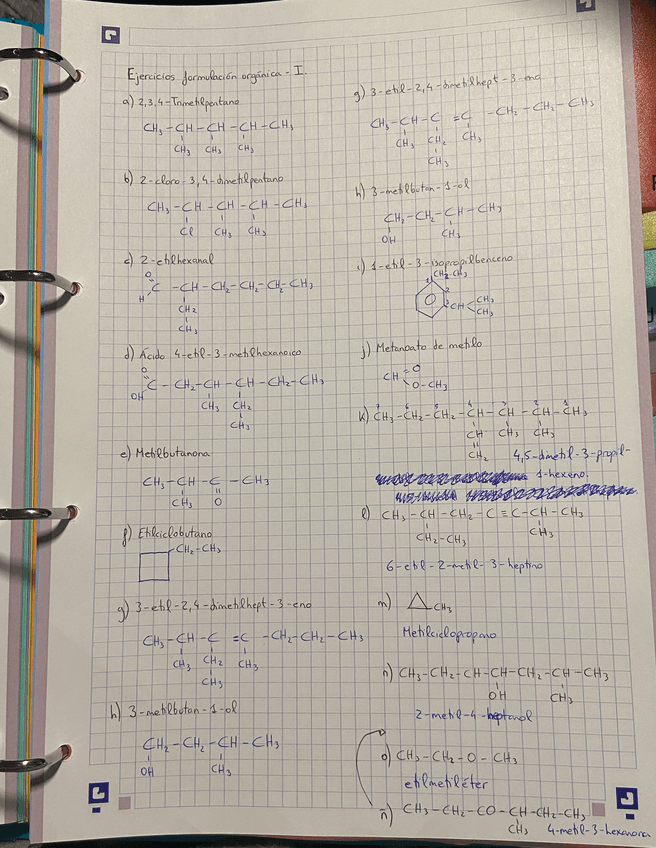 Ejercicios formulación orgánica - I.
a) 2,3,4-Trimetilpentano
CH₃-CH-CH-CH-CH₃
CH₃ CH₃ CH₃
b) 2-cloro-3,4-dimetilpentano
CH₃-CH-CH-CH-CH₃
Cl CH₃ CH₃
c) 2-etilhexanal
O
H C-CH-CH₂-CH₂-CH₂-CH₃
CH₂
CH₃
d) Ácido 4-etil-3-metilhexanoico
O
OH C-CH₂-CH-CH-CH₂-CH₃
CH₃ CH₂
CH₃
e) Metilbutanona
CH₃-CH-C-CH₃
CH₃ O
f) Etilciclobutano
CH₂-CH₃
g) 3-etil-2,4-dimetilhept-3-eno
CH₃-CH-C=C-CH₂-CH₂-CH₃
CH₃ CH₂ CH₃
CH₃
h) 3-metilbutan-1-ol
CH₂-CH₂-CH-CH₃
OH CH₃
g) 3-etil-2,4-dimetilhept-3-eno
CH₃-CH-C=C-CH₂-CH₂-CH₃
CH₃ CH₂ CH₃
CH₃
h) 3-metilbutan-1-ol
CH₂-CH₂-CH-CH₃
OH CH₃
i) 1-etil-3-isopropilbenceno
CH₂CH₃
1
2
3 CH CH₃
CH₃
j) Metanoato de metilo
CH=O
O-CH₃
7 6 5 4 3 2 1
k) CH₃-CH₂-CH₂-CH-CH-CH-CH₃
CH CH₃ CH₃
CH₂ 4,5-dimetil-3-propil-
1-hexeno.
l) CH₃-CH-CH₂-C≡C-CH-CH₃
CH₂-CH₃ CH₃
6-etil-2-metil-3-heptino
m) CH₃
Metilciclopropano
n) CH₃-CH₂-CH-CH-CH₂-CH-CH₃
OH CH₃
2-metil-4-heptanol
o) CH₃-CH₂-O-CH₃
etilmetiléter
ñ) CH₃-CH₂-CO-CH-CH₂-CH₃
CH₃ 4-metil-3-hexanona